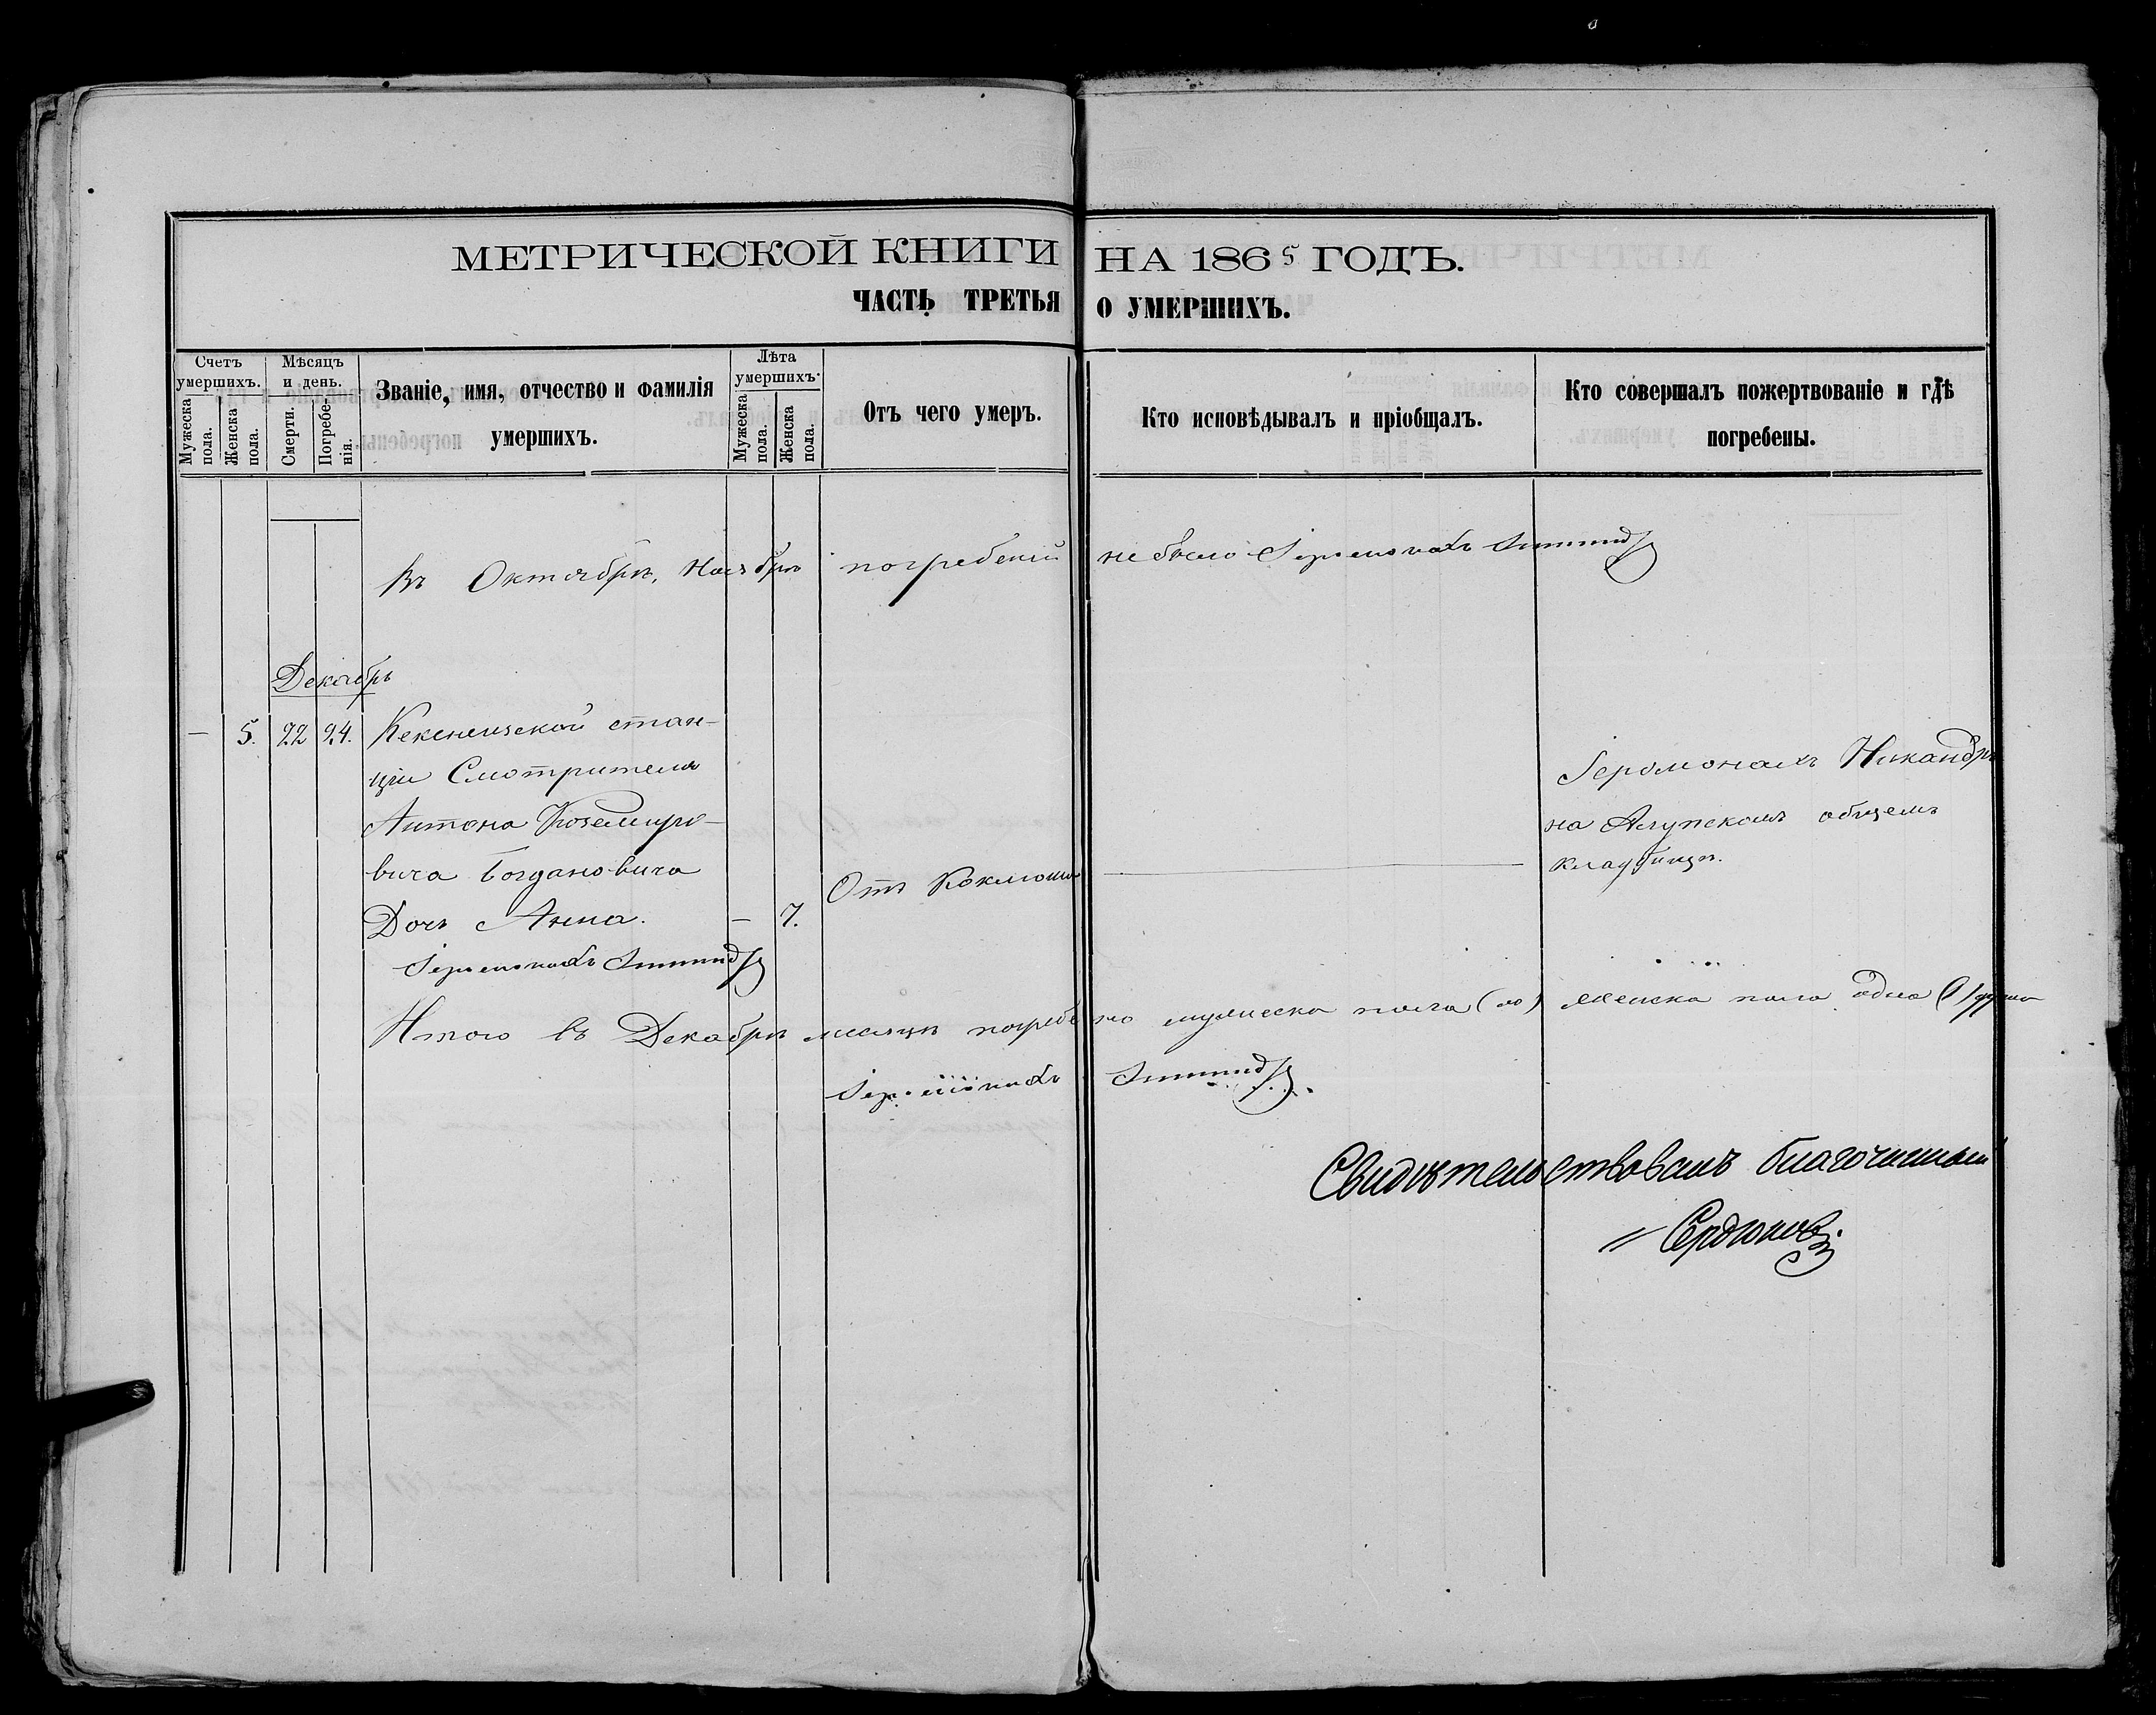 МЕТРИЧЕСКОЙ КНИГИ НА 1865 ГОДЪ.
ЧАСТЬ ТРЕТЬЯ О УМЕРШИХЪ.
Счетъ умершихъ.
Мужеска пола.
Женска пола.
Мѣсяцъ и день.
Смерти.
Погребенія.
Званіе, имя, отчество и фамилія умершихъ.
Лѣта умершихъ.
Мужеска пола.
Женска пола.
Отъ чего умеръ.
Кто исповѣдывалъ и пріобщалъ.
Кто совершалъ пожертвованіе и гдѣ погребены.
Въ Октябрѣ, Ноябрѣ погребеній не было Іеромонахъ
Декабрь
— 5. 22 24. Кекенеизской стан-
ціи Смотрителя
Антона Каземиро-
вича Богдановича
Дочь Анна. — 7.
Отъ Коклюша
Іеромонахъ Никандръ
на Алупскомъ общемъ
кладбищѣ.
Іеромонахъ
Итого въ Декабрѣ месяцѣ погребено мужеска пола (0) женска пола одна (1) душа
Іеромонахъ
Свидѣтельствовалъ благочинный
Сердюковъ